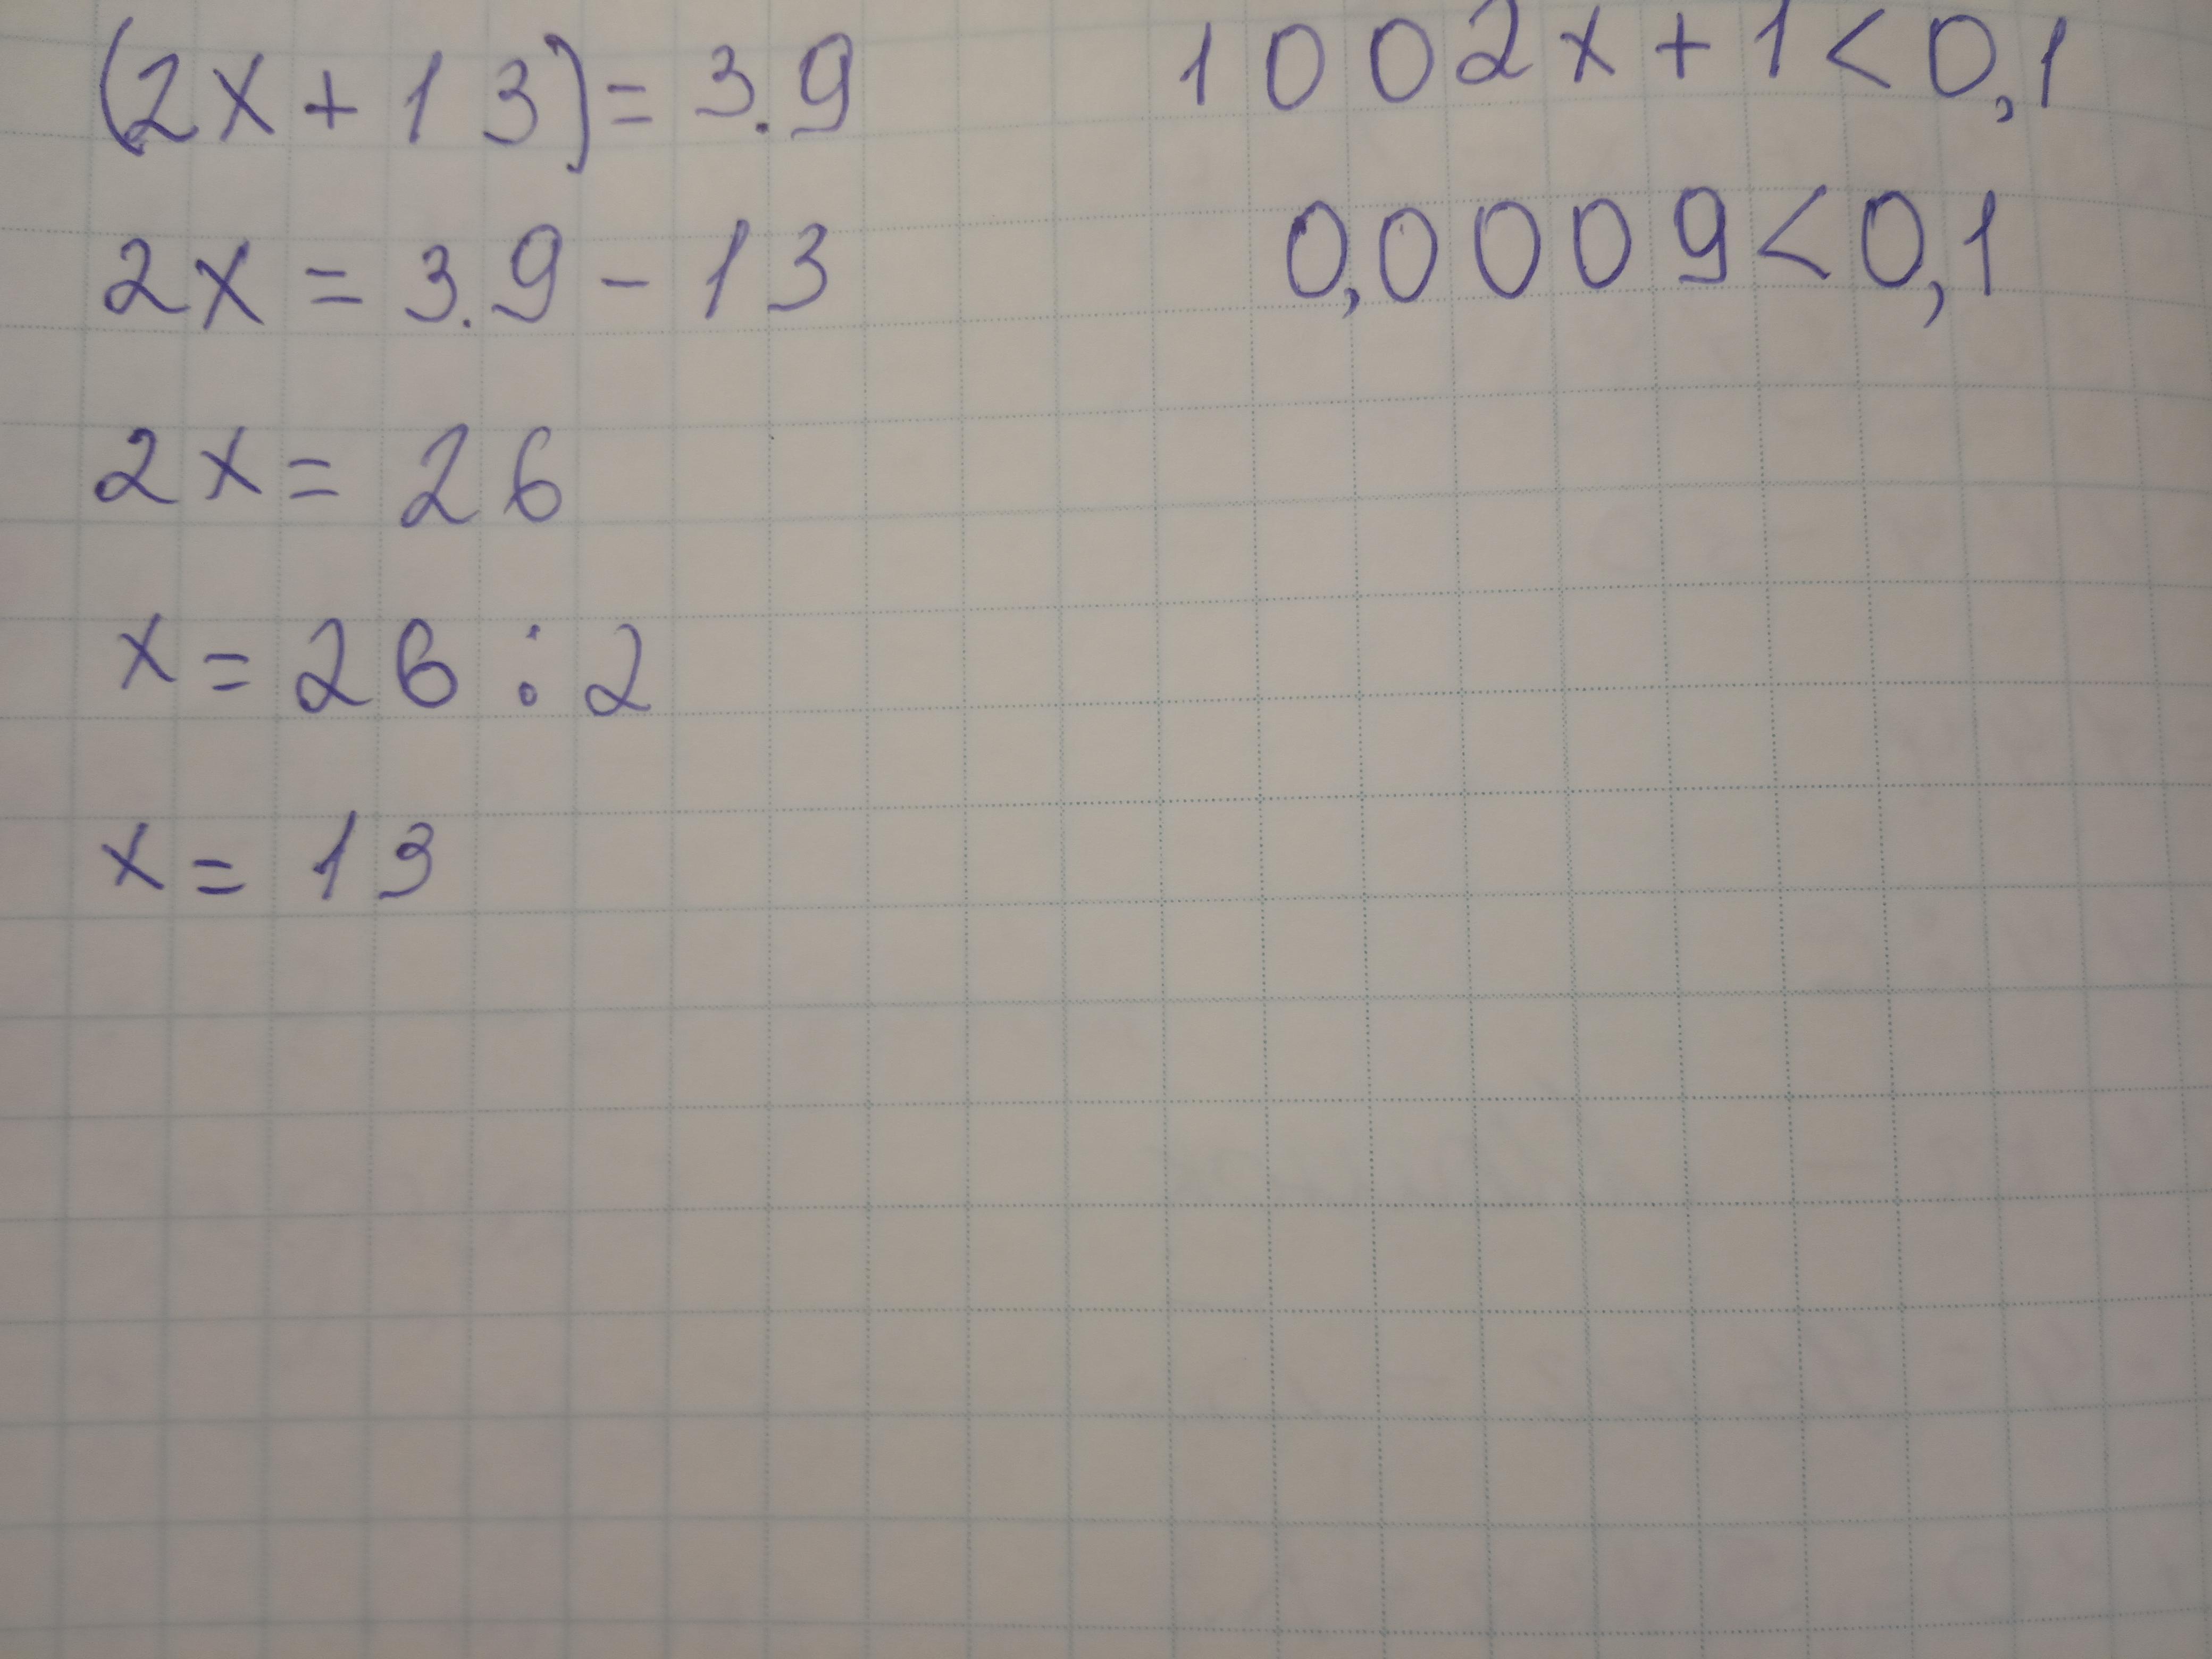 (2x+13)=3.9
2x=3.9-13
2x=26
x=26:2
x=13
1002x+1<0,1
0,0009<0,1